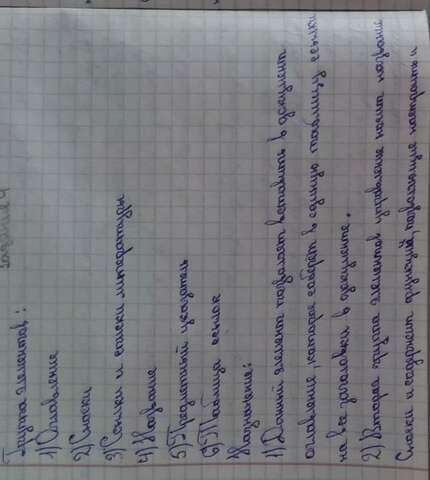 Задание 4
Группа элементов:
1) Оглавление
2) Сноски
3) Ссылки и списки литературы
4) Название
5) Предметный указатель
6) Таблица ссылок
Назначение:
1) Данный элемент позволяет вставить в документ
оглавление, которое соберёт в единую таблицу ссылки
на все заголовки в документе.
2) Вторая группа элементов управление носит название
Сноски и содержит функции, позволяющие настроить и